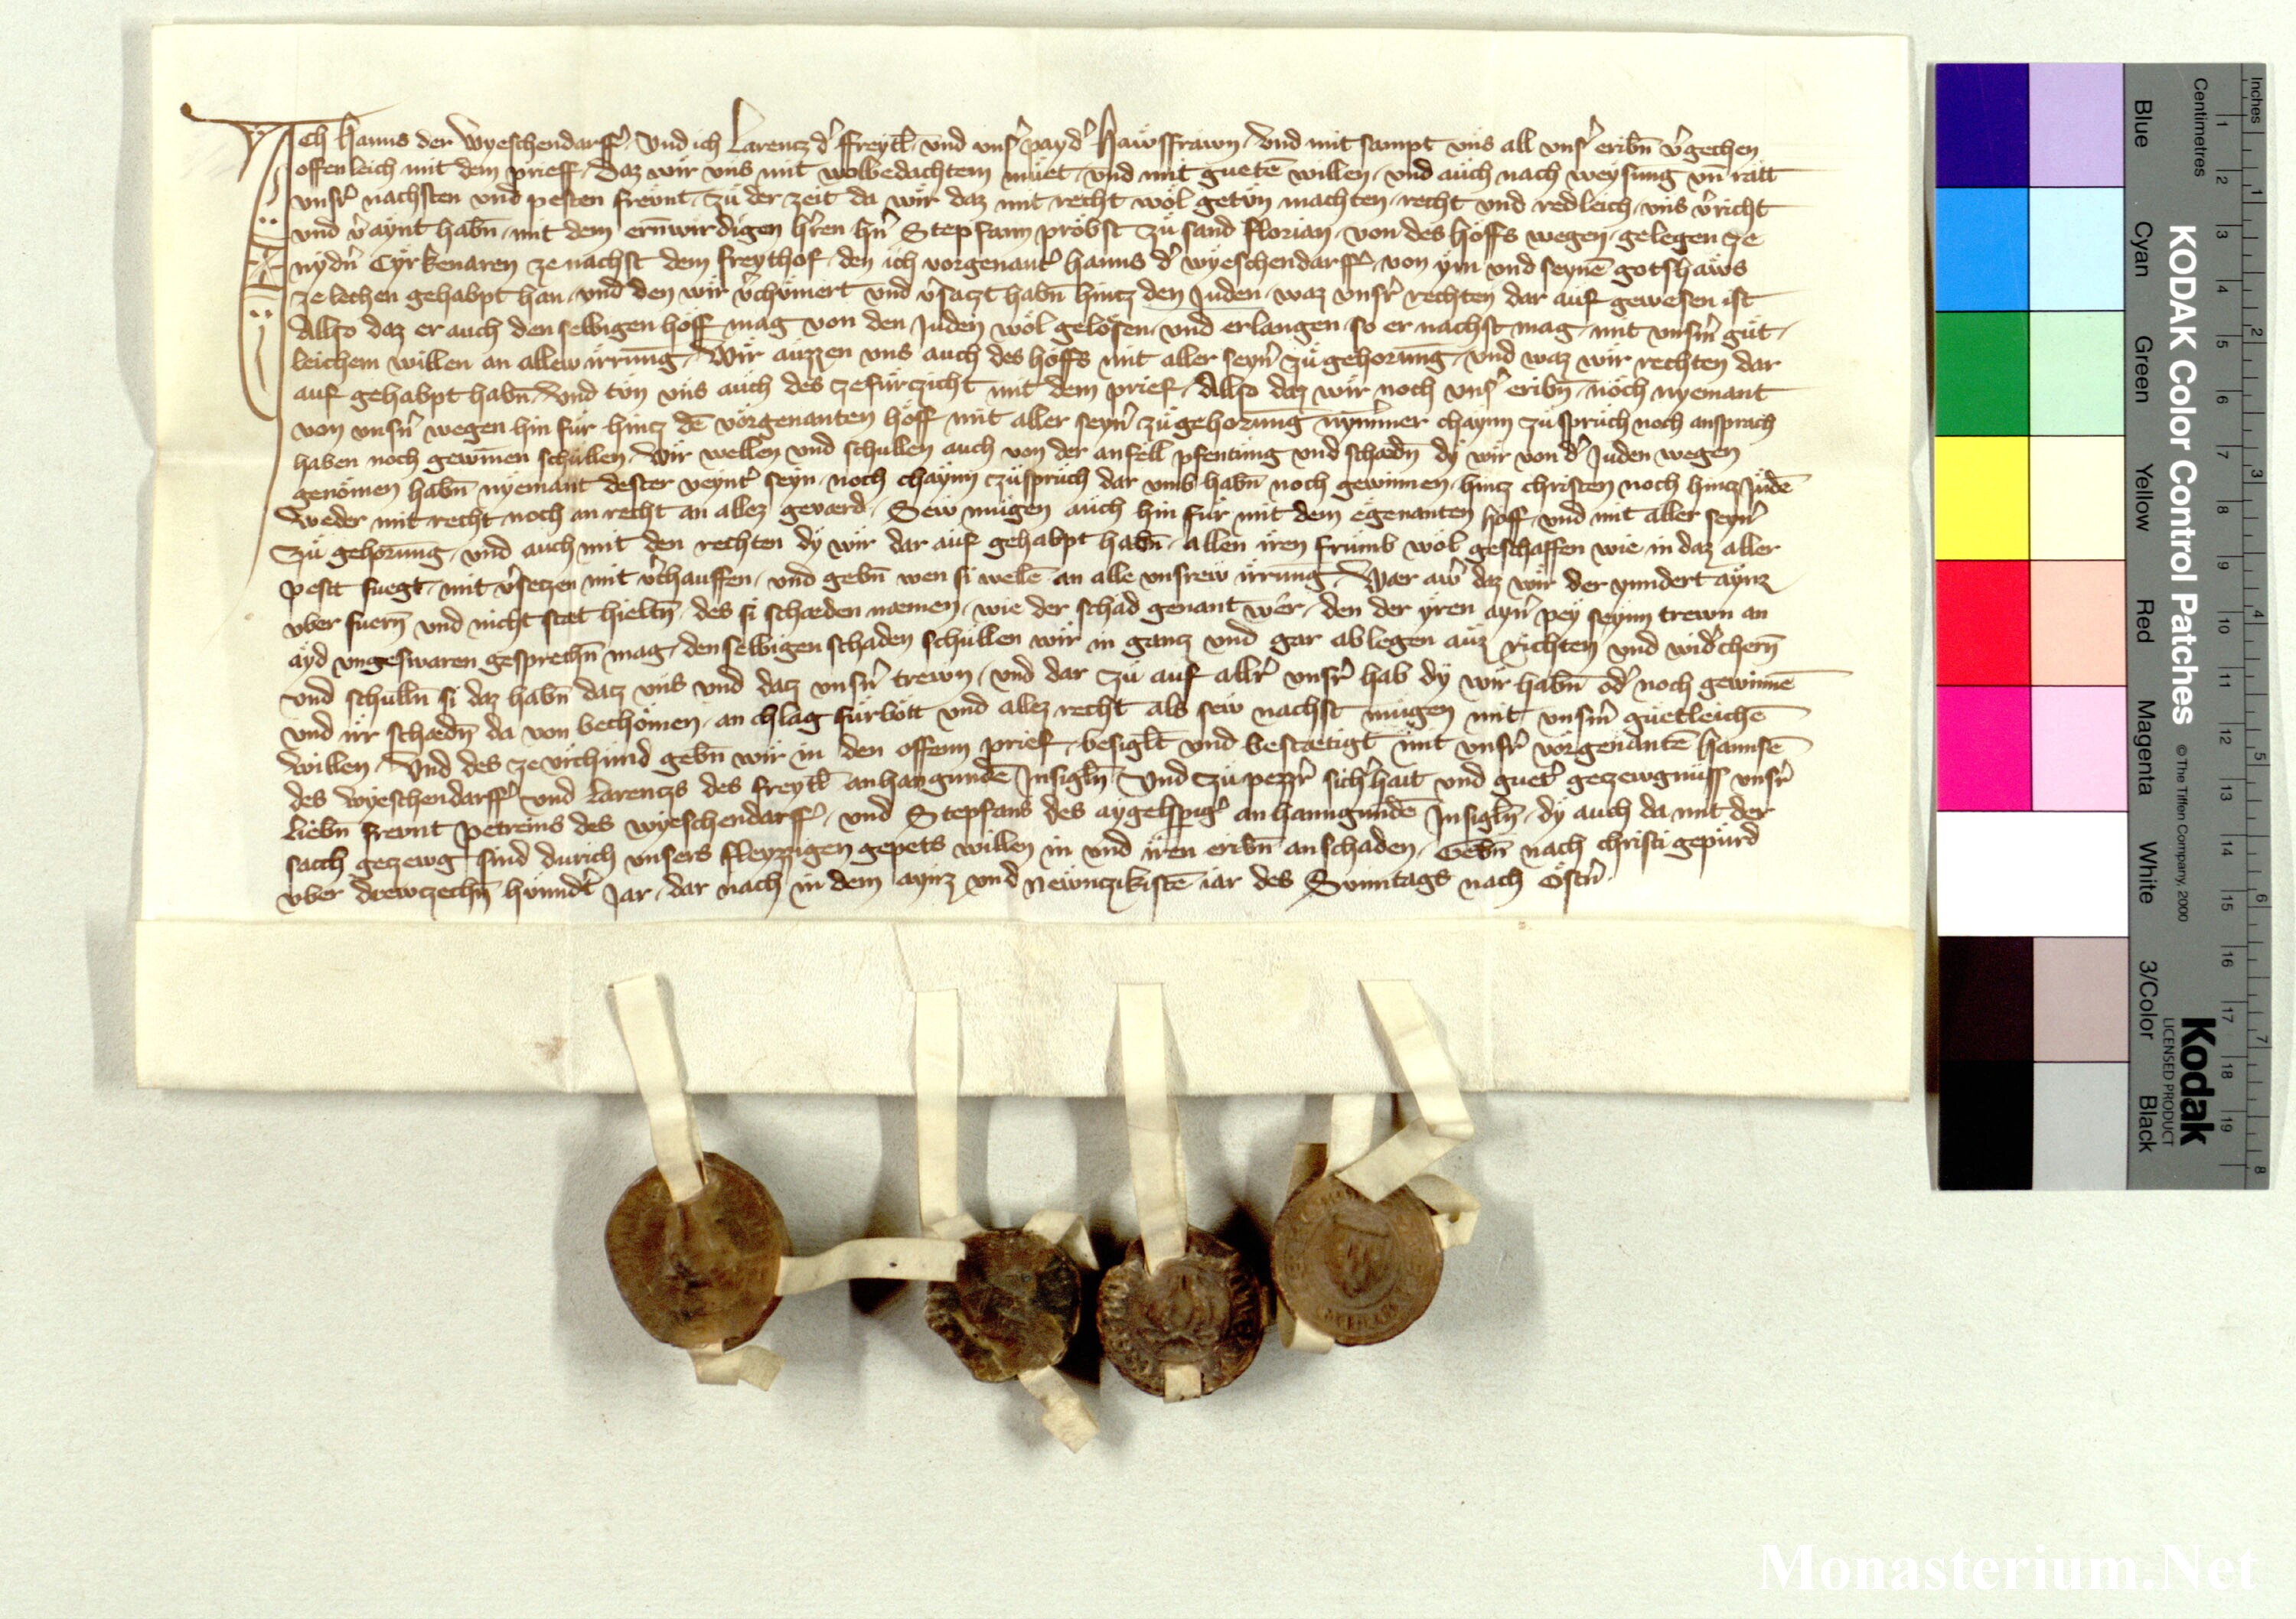 Ich Hanns der Wyeschendarffer Und ich Larentz der ffreytl und unser payder Hawsffrawn und mit sampt uns all unser eribn vergechen
offenleich mit dem prieff Daz wir uns mit wolbedachtem müet und mit guetē willen und auch nach weysung un ratt
unser nachsten und pesten frewnt zu der zeit da wir daz mit recht wol getün machten recht und redleich uns vericht
und veraynt habn mit dem ernwirdigen hren hn Stepfann pröbst zü sand florian von des hoffs wegen gelegen ze
nydn Cyrkenaren ze nachst dem freythof den ich vorgenant hanns der wyeschendarffer von ym und seynē gotshaws
ze lechen gehabpt han und den wir verchümert und versaczt habn hintz den Juden waz unser rechten dar auf gewesen ist
Allso daz er auch den selbigen höff mag von den Juden wol gelösen und erlangen so er nachst mag mit unserm güt
leichem willen an allew irrung Wir auzzen uns auch des höffs mit aller seyner zügehorung und waz wir rechten dar
auf gehabpt habn Und tün uns auch des ze fürczicht mit dem prief Allso daz wir noch unser eribn noch nyemant
von unsern wegen hin für hincz dē vorgenanten höff mit aller seyner zügehorung nymmer chaynn züspruch noch ansprach
haben noch gewinnen schullen Wir wellen und schullen auch von der anfell pfentung und schædn dy wir von der Juden wegen
genömen habn nyemant dester veynt seyn noch chaynn czüspruch dar umb habn noch gewinnen hincz christen noch hincz Judē
weder mit recht noch an recht an allez geværd Sew mügen auch hin für mit dem egenanten höff und mit aller seyner
zü gehorung und auch mit den rechten dy wir dar auf gehabpt habn allen iren frumb wol geschaffen wie in daz aller
pestt fuegt mit versetzen mit verchauffen und gebn wen si wellē an alle unsrew irrung Wær awer daz wir der yundert aynz
uber fuern und nicht stæt hieltn des si schæden næmen wie der schad genant wer den der yren ayner pey seynn trewn an
ayd ungeswaren gesprechn mag den selbigen schaden schullen wir in gancz und gar ablegen auz richten und widerchern
und schulln si daz habn dacz uns und dacz unsern trewn und dar zü auf aller unser hab dy wir habn oder noch gewinnē
und ir schædn da von bechömen an chlag fürbott und allez recht als sew nachst mugen mit unserm güetleichē
willen Und des ze urchünd gebn wir in den offenn prief besiglt und bestætigt mit unser vorgenantē Hannsē
des Wyeschendarffer und Larenczs des freytl anhangundē Insigln Und czü pezzer sicherhait und gueter geczewgnüss unser
liebn frewnt Petreins des wyeschendarffer und Stepfans des aygelsperger anhanngundē Insigln dy auch da mit der
sach geczewg sind durich unsers fleyzzigen gepets willen in und iren eribn an schaden Gebn nach christi gepurd
uber drewczechn hundert Jar dar nach in dem aynz und Newnczikistē iar des Sunntags nach Ostern
Inches
Centimetres
KODAK Color Control Patches
© The Tiffen Company, 2000
Kodak
LICENSED PRODUCT
Blue
Cyan
Green
Yellow
Red
Magenta
White
3/Color
Black
1 2 3 4 5 6 7 8 9 10 11 12 13 14 15 16 17 18 19
1 2 3 4 5 6 7 8
Monasterium.Net